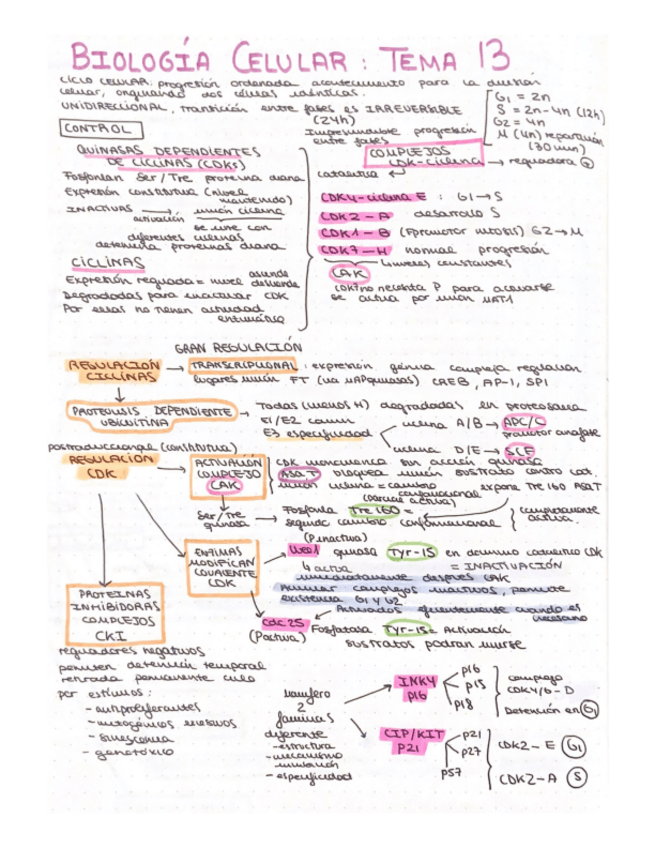 BIOLOGÍA CELULAR: TEMA 13
CICLO CELULAR: progresión ordenada acontecimiento para la división
celular, originando dos células idénticas.
UNIDIRECCIONAL, transición entre fases es IRREVERSIBLE
(24h)
G1 = 2n
S = 2n-4n (12h)
G2 = 4n
M (4n) repartición
(30 min)
CONTROL
Imprescindible progresión
entre fases
QUINASAS DEPENDIENTES
DE CICLINAS (CDKs)
Fosforilan Ser/Tre proteína diana
Expresión constitutiva (nivel
mantenido)
INACTIVAS → unión ciclina
activación
se une con
diferentes ciclinas
determina proteínas diana
CICLINAS
Expresión regulada = nivel asciende
desciende
Degradadas para inactivar CDK
Por ellas no tienen actividad
enzimática
COMPLEJOS
CDK-ciclina → reguladora
catalítica
CDK4-ciclina E : G1→S
CDK2-A desarrollo S
CDK1-B (Fpromotor mitosis) G2→M
CDK7-H normal progresión
niveles constantes
CAK
CDK7 no necesita P para activarse
se activa por unión MAT1
GRAN REGULACIÓN
REGULACIÓN
CICLINAS
→ TRANSCRIPCIONAL : expresión génica compleja regulación
lugares unión FT (vía MAPquinasas) CREB, AP-1, SP1
PROTEOLISIS DEPENDIENTE
UBICUITINA
→ Todas (menos H) degradadas en proteosoma
E1/E2 común
E3 especificidad
ciclina A/B → APC/C
promotor anafase
ciclina D/E → SCF
postraduccional (constitutiva)
REGULACIÓN
CDK
ACTIVACIÓN
COMPLEJO
CAK
CDK monomérica sin acción quinasa
ASA T bloquea unión sustrato centro cat.
unión ciclina = cambio
conformacional
expone Tre 160 ASA T
Ser/Tre
quinasa
→ Fosforila Tre 160 =
segundo cambio conformacional
completamente
activa
ENZIMAS
MODIFICAN
COVALENTE
CDK
(P inactiva)
Wee1 quinasa Tyr-15 en dominio catalítico CDK
= INACTIVACIÓN
activa
inmediatamente después CAK
Acumular complejos inactivos, permite
existencia G1 y G2
Activados eficientemente cuando es
necesario
cdc25
(P activa) Fosfatasa Tyr-15 = Activación
sustratos podrán unirse
PROTEÍNAS
INHIBIDORAS
COMPLEJOS
CKI
reguladores negativos
permiten detención temporal
retirada permanente ciclo
por estímulos:
- antiproliferantes
- mitogénicos
- senescencia
- genotóxico
mamífero
2
familias
diferente
- estructura
- mecanismo
- especificidad
INK4
p16
p16
p15
p18
complejo
CDK4/6-D
Detención en G1
CIP/KIT
P21
p21
p27
p57
CDK2-E G1
CDK2-A S